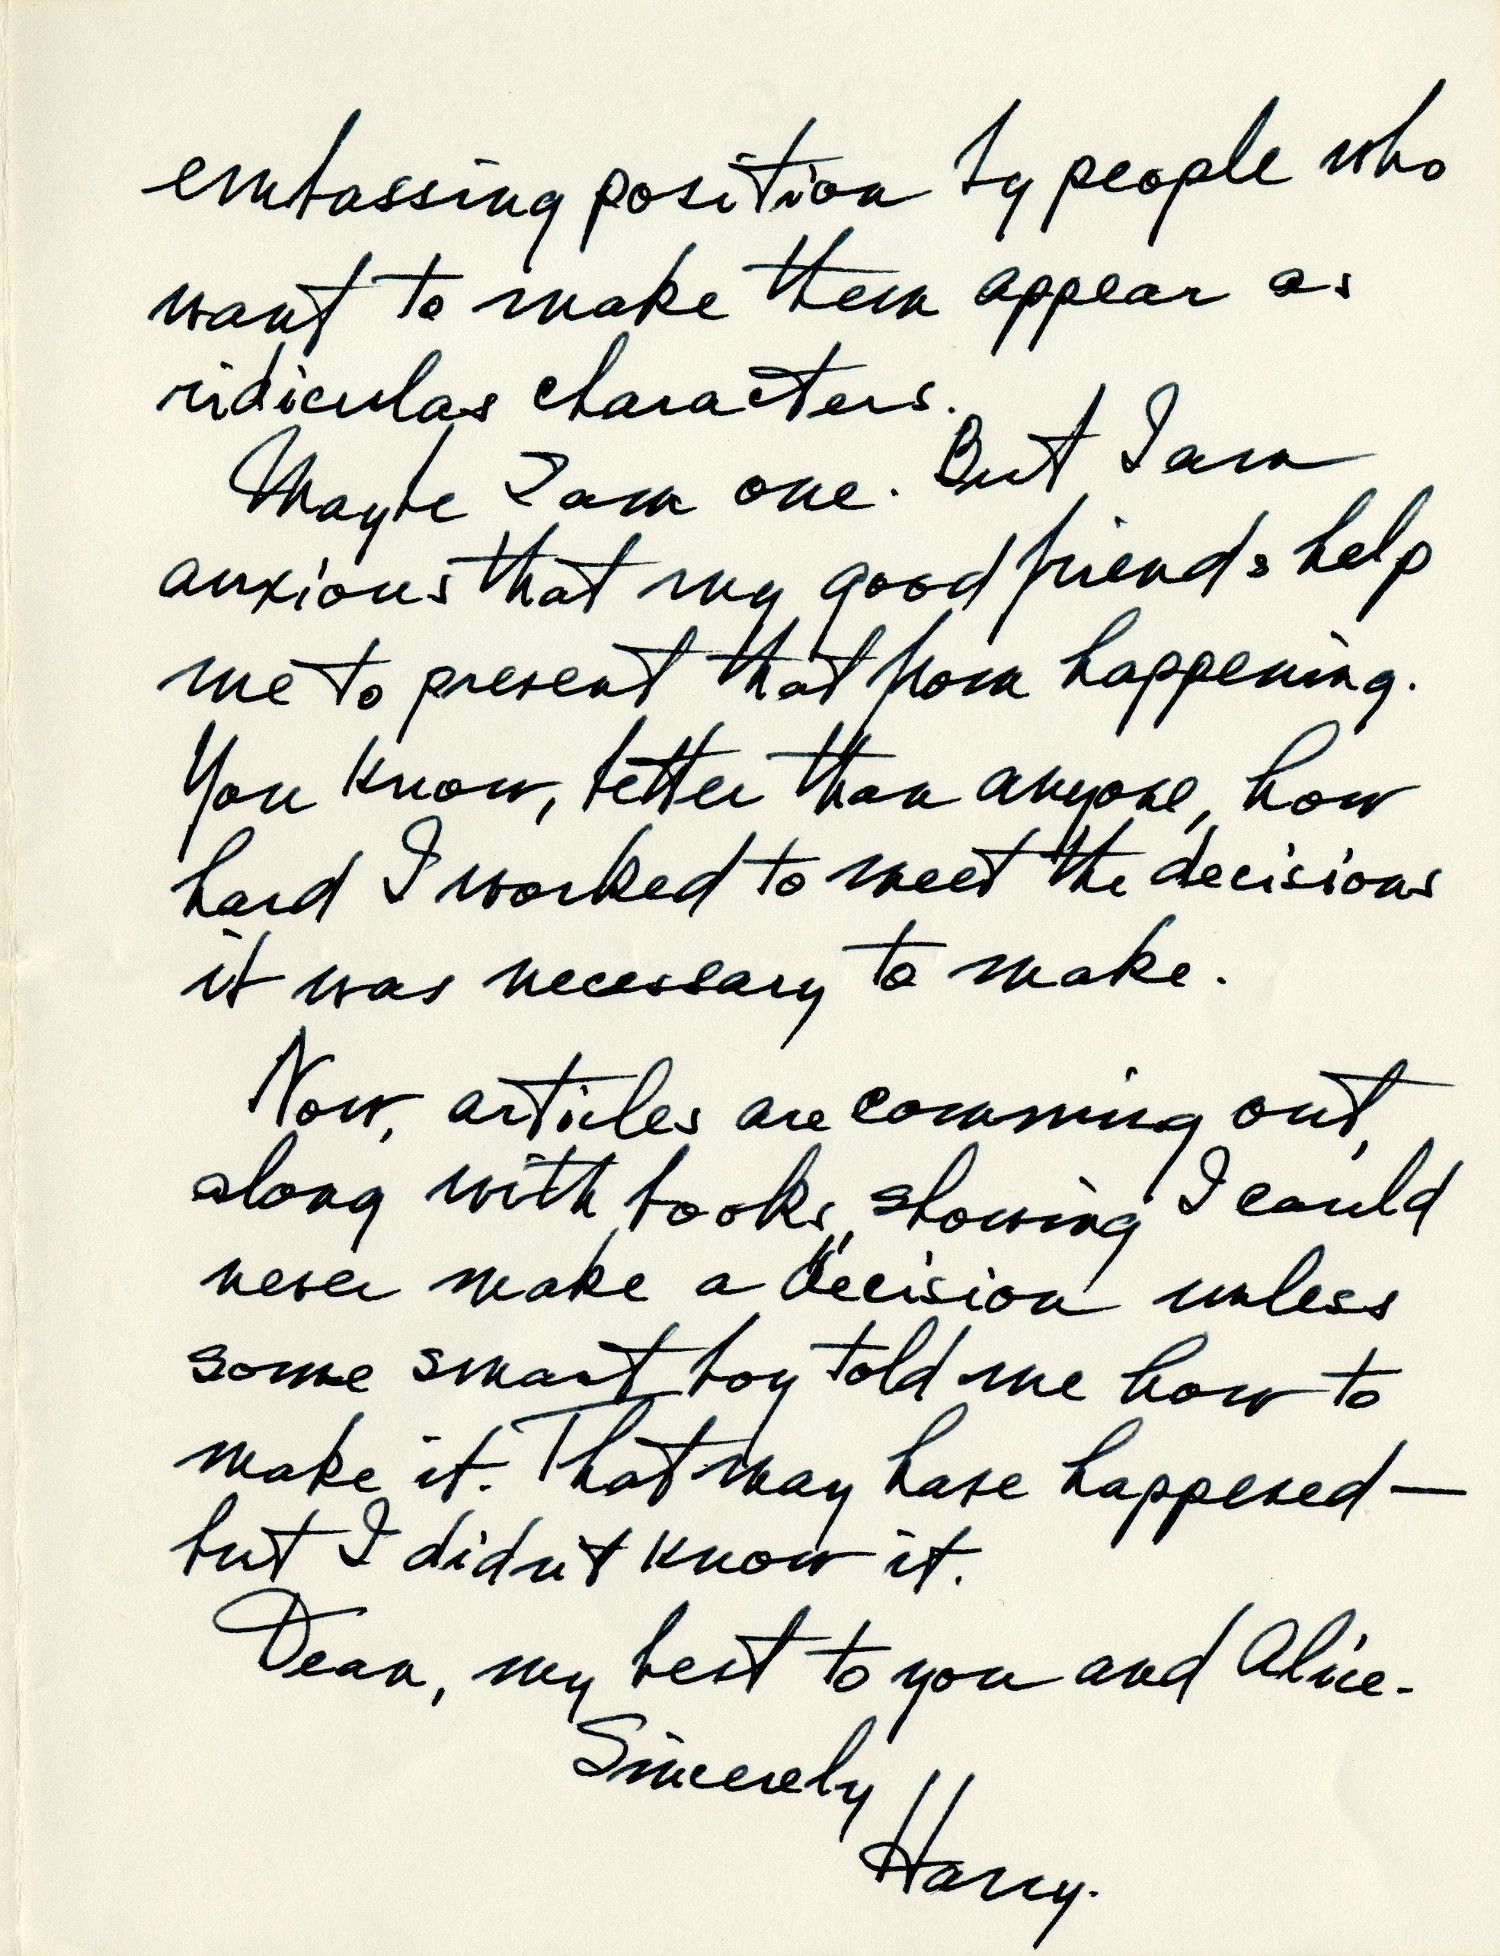 embassing position by people who
want to make them appear as
ridiculas characters.
Maybe I am one. But I am
anxious that my good friends help
me to prevent that from happening.
You know, better than anyone, how
hard I worked to meet the decisions
it was necessary to make.
Now, articles are comming out,
along with books, showing I could
never make a "decision unless
some smart boy told me how to
make it. That may have happened—
but I didn't know it.
Dean, my best to you and Alice.
Sincerely
Harry.